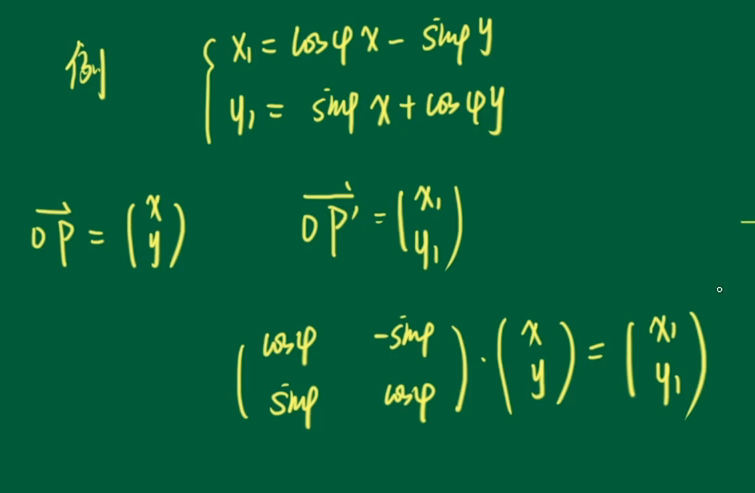 例 { x₁ = cosφ x - sinφ y
y₁ = sinφ x + cosφ y
OP⃗ = (x y) OP'⃗ = (x₁ y₁)
(cosφ -sinφ sinφ cosφ) · (x y) = (x₁ y₁)